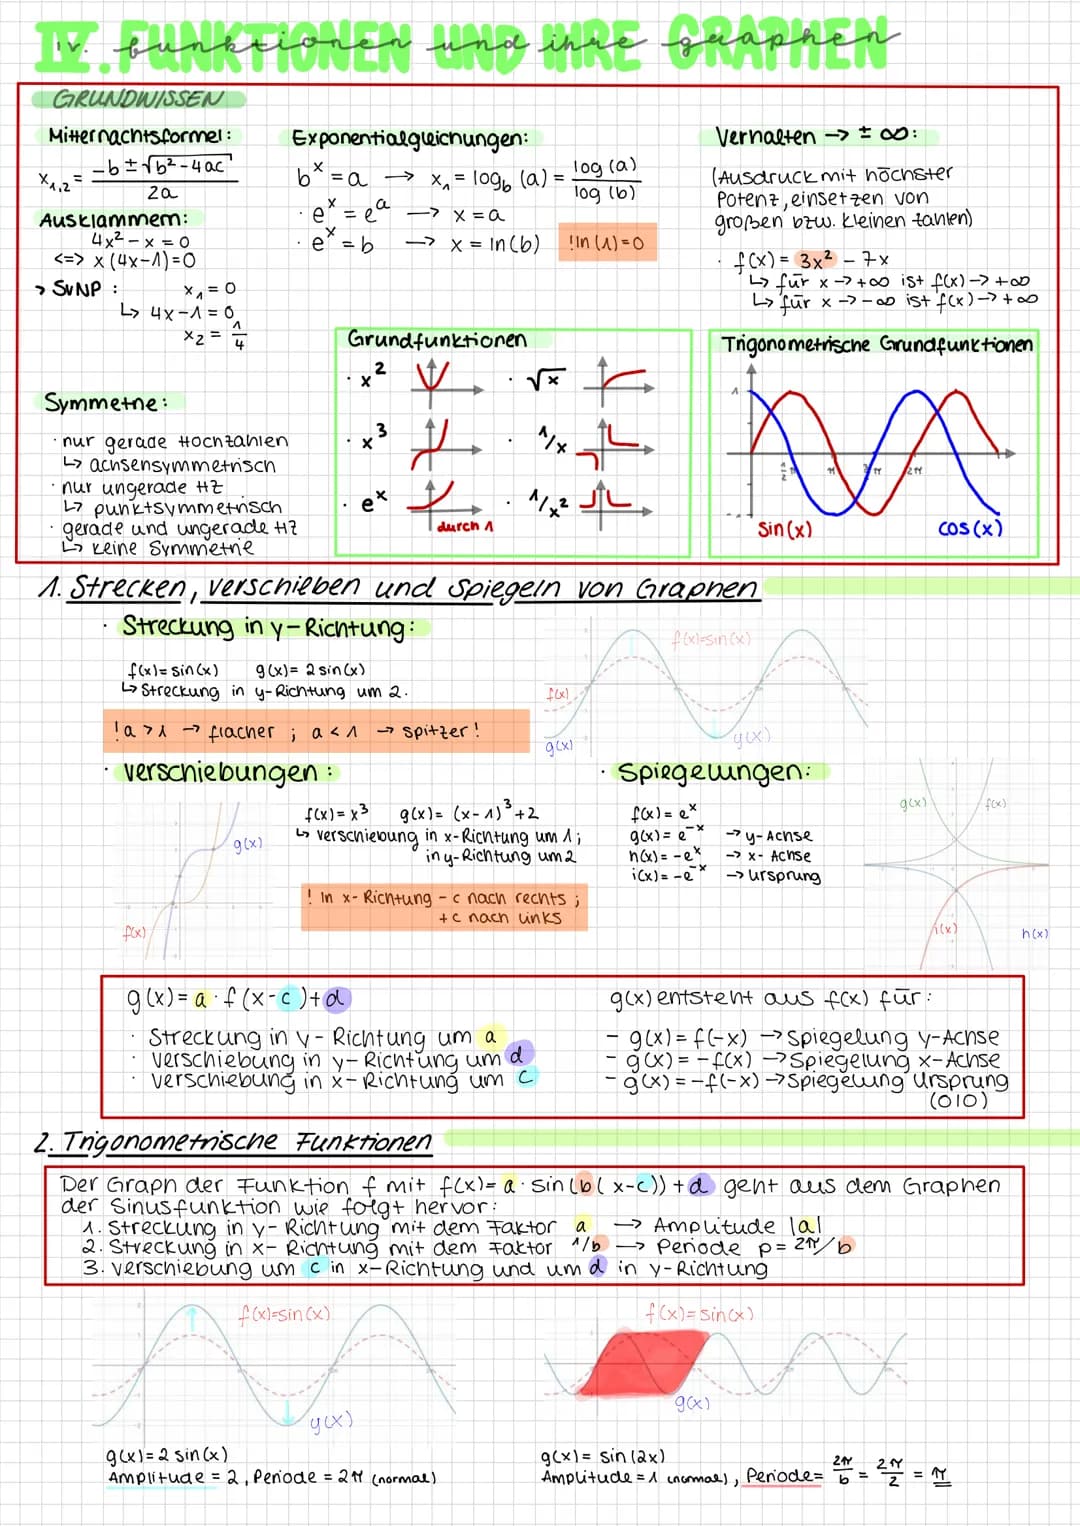 IV. FUNKTIONEN UND IHRE GRAPHEN
iv. funktionen und ihre graphen
GRUNDWISSEN
Mitternachtsformel:
x₁,₂ = (-b ± √(b²-4ac)) / 2a
Ausklammern:
4x² - x = 0
<=> x(4x-1)=0
> SVNP : x₁ = 0
↳ 4x-1 = 0
x₂ = 1/4
Symmetrie:
· nur gerade Hochzahlen
↳ achsensymmetrisch
· nur ungerade HZ
↳ punktsymmetrisch
· gerade und ungerade HZ
↳ keine Symmetrie
Exponentialgleichungen:
bˣ = a → x₁ = log_b (a) = log(a) / log(b)
· eˣ = eᵃ → x = a
· eˣ = b → x = ln(b) !ln(1)=0
Verhalten → ± ∞:
(Ausdruck mit höchster
Potenz, einsetzen von
großen bzw. kleinen zahlen)
· f(x) = 3x² - 7x
↳ für x → +∞ ist f(x) → +∞
↳ für x → -∞ ist f(x) → +∞
Grundfunktionen
· x² · √x
· x³ · 1/x
· eˣ durch 1 · 1/x²
Trigonometrische Grundfunktionen
1
½π π 3/2π 2π
-1
sin(x) cos(x)
1. Strecken, verschieben und spiegeln von Graphen
· Streckung in y-Richtung:
f(x)= sin(x) g(x)= 2 sin(x)
↳ Streckung in y-Richtung um 2.
!a > 1 → flacher ; a < 1 → spitzer!
f(x)=sin(x)
f(x)
g(x)
g(x)
· verschiebungen:
f(x)= x³ g(x)= (x-1)³+2
↳ verschiebung in x-Richtung um 1;
in y-Richtung um 2
! In x-Richtung - c nach rechts ;
+c nach links
g(x)
f(x)
· Spiegelungen:
f(x)= eˣ
g(x)= e⁻ˣ → y-Achse
h(x)= -eˣ → x-Achse
i(x)= -e⁻ˣ → Ursprung
g(x) f(x)
i(x) h(x)
g(x)= a · f(x-c)+d
· Streckung in y-Richtung um a
· Verschiebung in y-Richtung um d
· verschiebung in x-Richtung um c
g(x) entsteht aus f(x) für:
- g(x) = f(-x) → Spiegelung y-Achse
- g(x) = -f(x) → Spiegelung x-Achse
- g(x) = -f(-x) → Spiegelung Ursprung
(0|0)
2. Trigonometrische Funktionen
Der Graph der Funktion f mit f(x)= a · sin(b(x-c)) + d geht aus dem Graphen
der Sinusfunktion wie folgt hervor:
1. Streckung in y-Richtung mit dem Faktor a → Amplitude |a|
2. Streckung in x-Richtung mit dem Faktor 1/b → Periode p= 2π/b
3. verschiebung um c in x-Richtung und um d in y-Richtung
f(x)=sin(x)
g(x)
g(x)= 2 sin(x)
Amplitude = 2, Periode = 2π (normal)
f(x)= sin(x)
g(x)
g(x)= sin(2x)
Amplitude = 1 (normal), Periode= 2π/b = 2π/2 = π